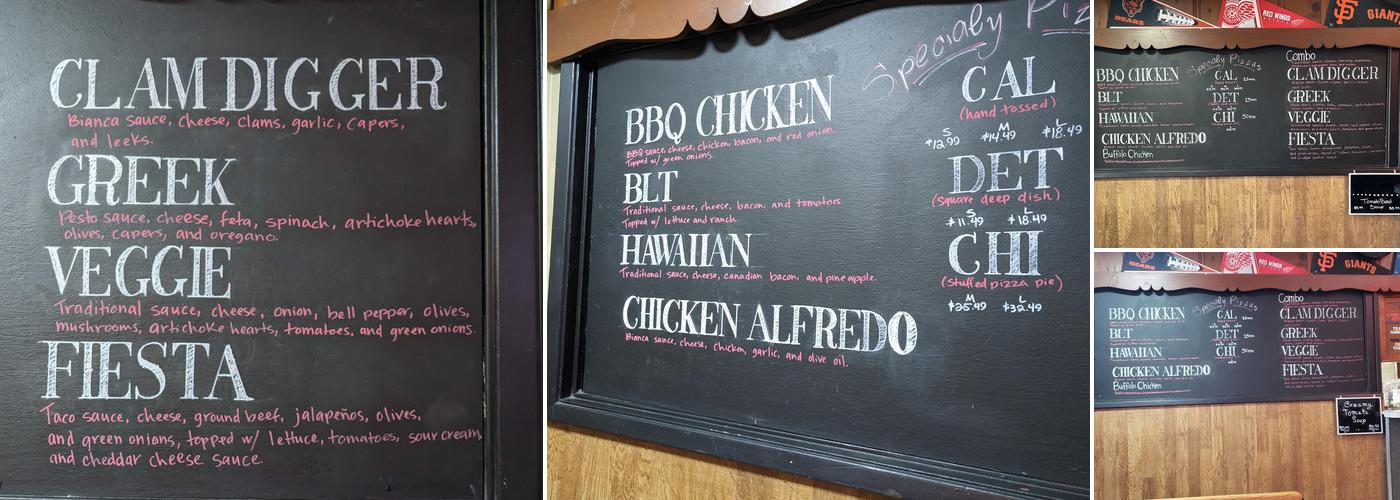 CLAM DIGGER
Bianca sauce, cheese, clams, garlic, capers,
and leeks.
GREEK
Pesto sauce, cheese, feta, spinach, artichoke hearts,
olives, capers, and oregano.
VEGGIE
Traditional sauce, cheese, onion, bell pepper, olives,
mushrooms, artichoke hearts, tomatoes, and green onions.
FIESTA
Taco sauce, cheese, ground beef, jalapeños, olives,
and green onions, topped w/ lettuce, tomatoes, sour cream,
and cheddar cheese sauce.
Specialy Piz
BBQ CHICKEN
BBQ sauce, cheese, chicken, bacon, and red onion.
Topped w/ green onions.
BLT
Traditional sauce, cheese, bacon, and tomatoes.
Topped w/ lettuce and ranch.
HAWAIIAN
Traditional sauce, cheese, canadian bacon, and pineapple.
CHICKEN ALFREDO
Bianca sauce, cheese, chicken, garlic, and olive oil.
CAL
(hand tossed)
S M L
$12.99 $14.49 $18.49
DET
(square deep dish)
S L
$11.49 $18.49
CHI
(stuffed pizza pie)
M L
$25.49 $32.49
BEARS
RED WINGS
SF
GIANTS
Specialy Pizzas
BBQ CHICKEN
BLT
HAWAIIAN
CHICKEN ALFREDO
Buffalo Chicken
CAL
DET
CHI
Combo
CLAM DIGGER
GREEK
VEGGIE
FIESTA
Tomato Basil
Soup
BEARS
RED WINGS
SF
GIANTS
Specialy Pizzas
BBQ CHICKEN
BLT
HAWAIIAN
CHICKEN ALFREDO
Buffalo Chicken
CAL
DET
CHI
Combo
CLAM DIGGER
GREEK
VEGGIE
FIESTA
Creamy
Tomato
Soup